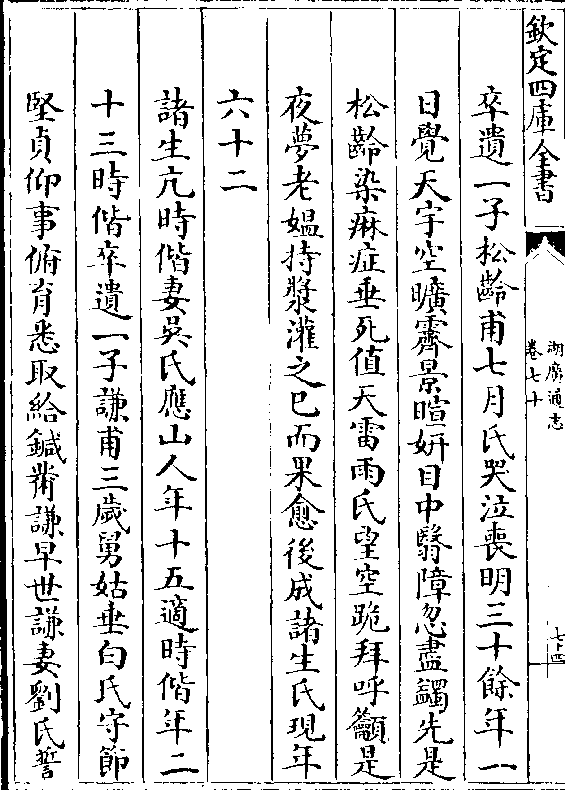 欽定四庫全書
湖廣通志
卷七十
七十四
卒遺一子松齡甫七月氏哭泣喪明三十餘年一
日覺天宇空曠霽景暄妍目中翳障忽盡蠲先是
松齡染痳症垂死值天雷雨氏望空跪拜呼籲是
夜夢老媪持漿灌之已而果愈後成諸生氏現年
六十二
諸生亢時偕妻吳氏應山人年十五適時偕年二
十三時偕卒遺一子謙甫三歲舅姑垂白氏守節
堅貞仰事俯育悉取給鍼黹謙早世謙妻劉氏誓